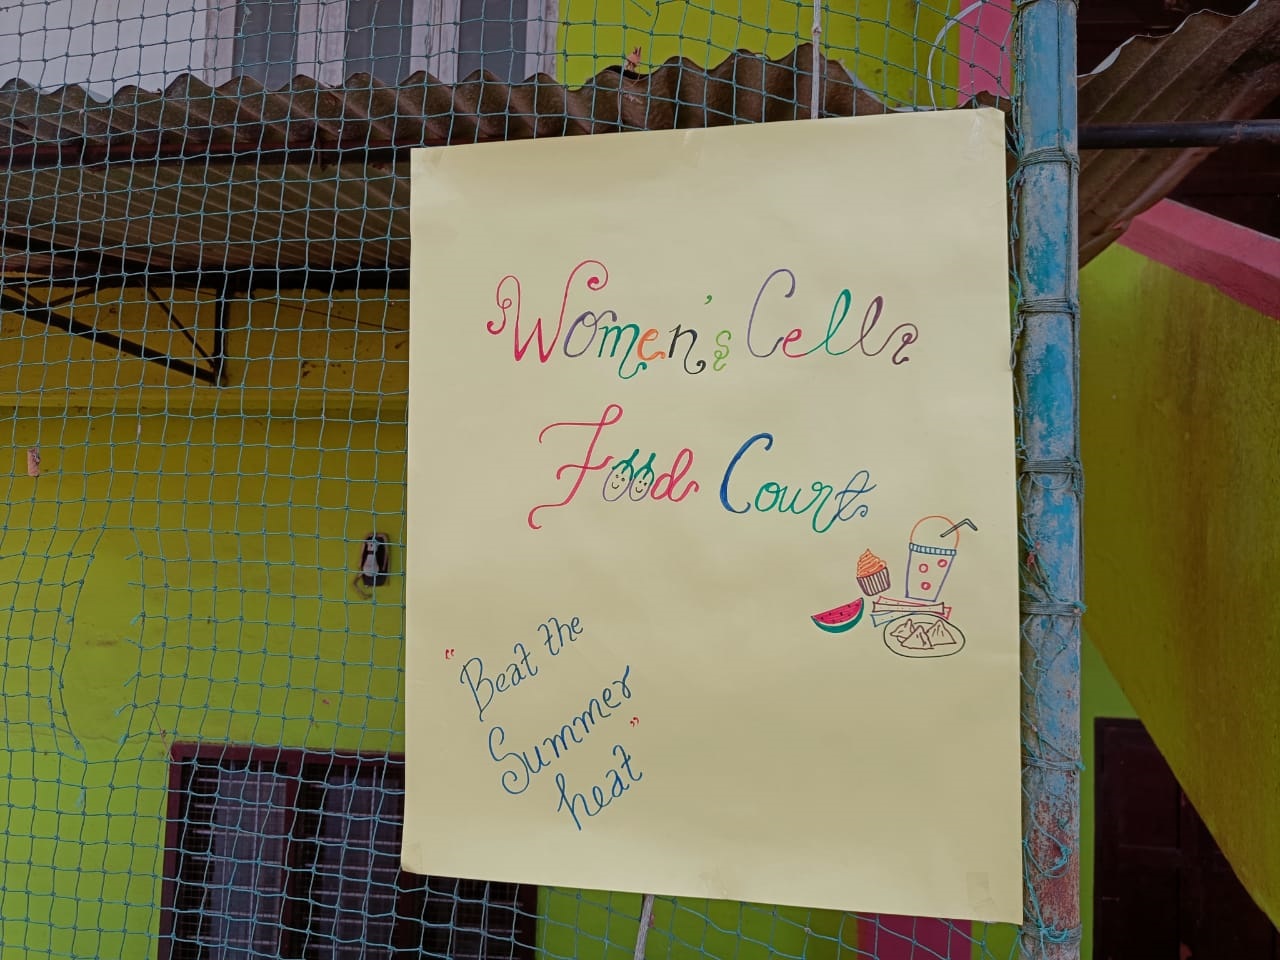 Women's Cell
Food Court
"Beat the
Summer
heat"